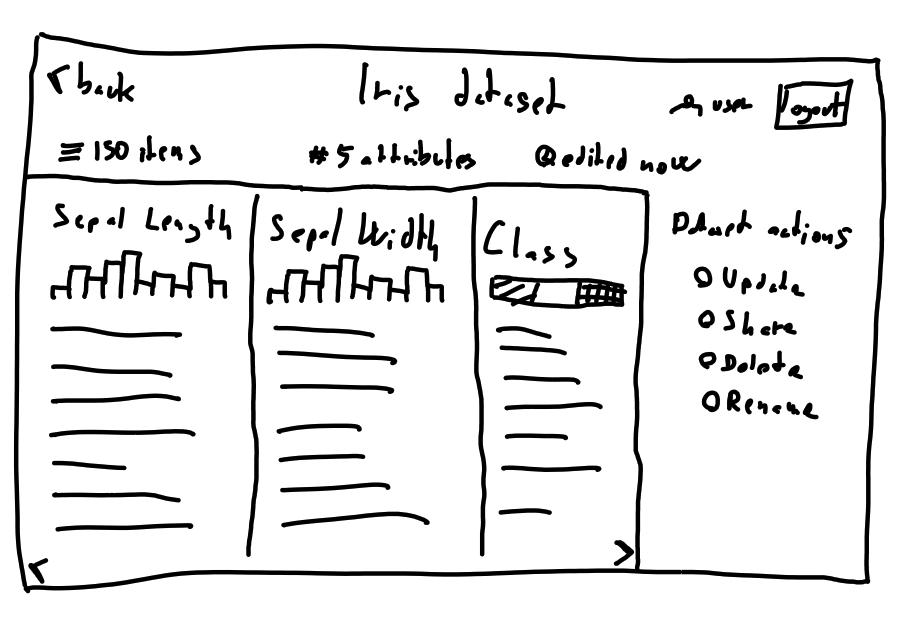 < back Iris dataset user Logout
150 items # 5 attributes edited now
Sepal Length Sepal Width Class
Dataset actions
Update
Share
Delete
Rename
< >